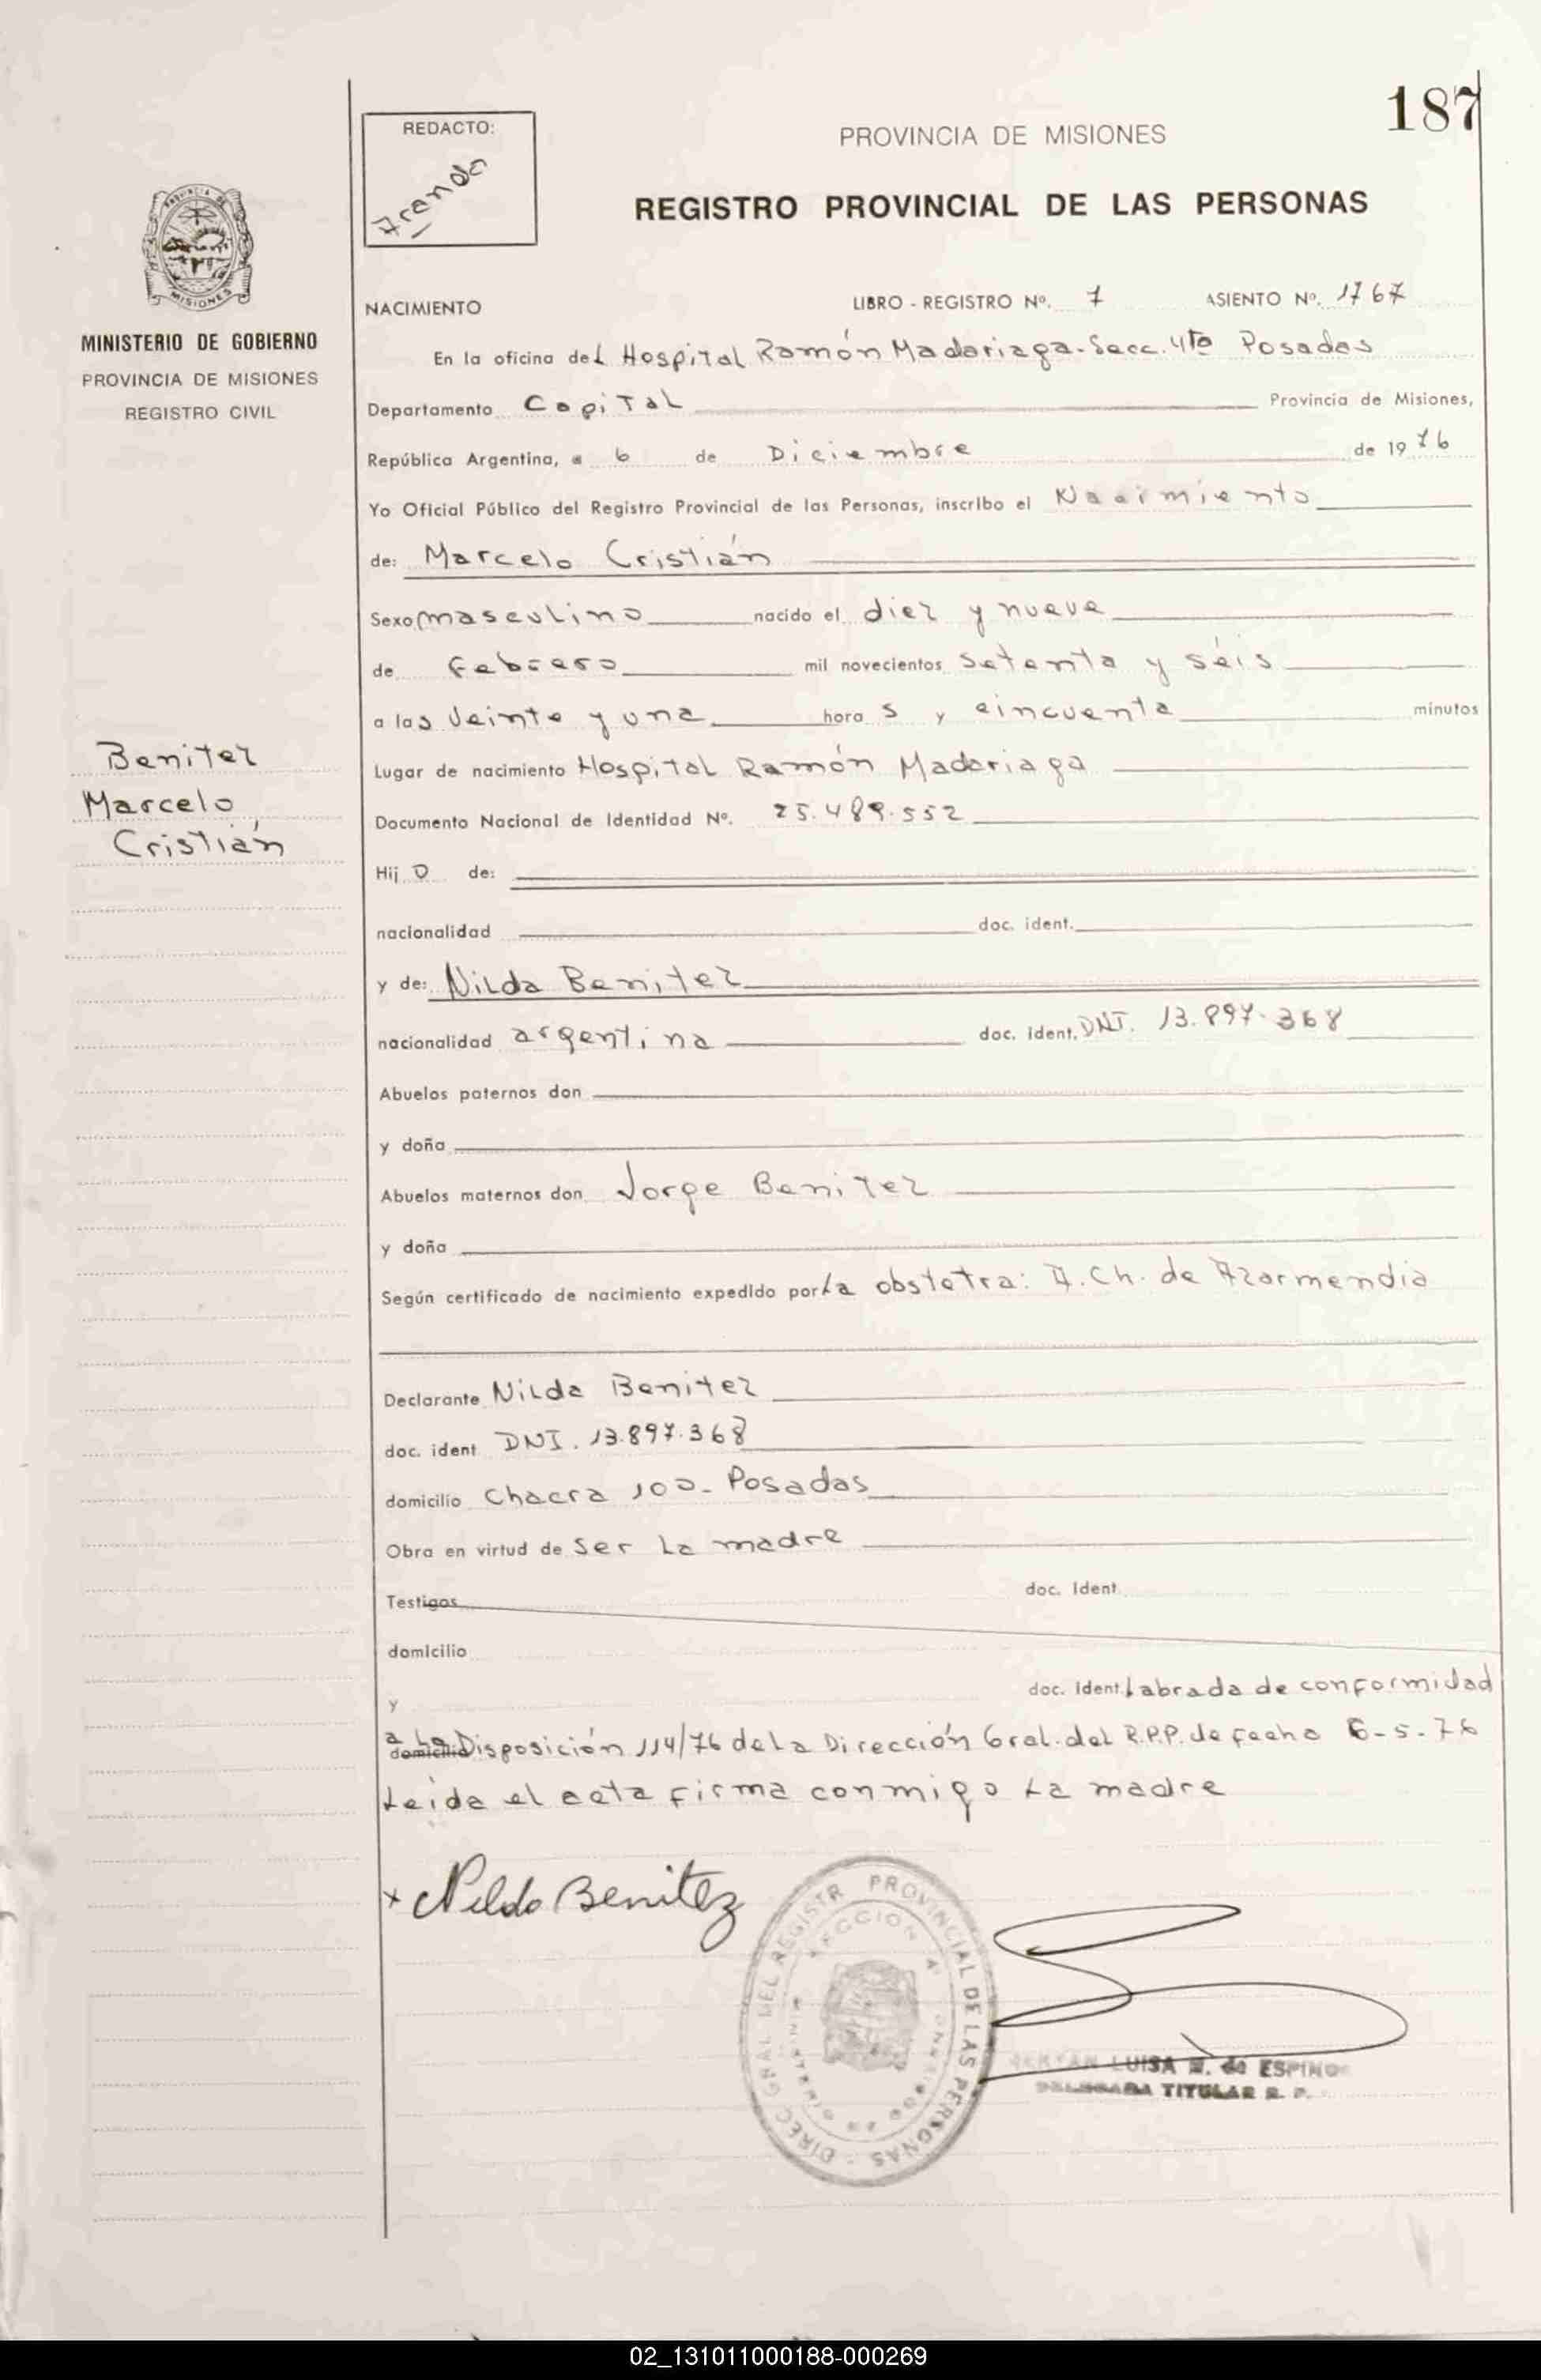 187
REDACTO:
PROVINCIA DE MISIONES
REGISTRO PROVINCIAL DE LAS PERSONAS
MISIONES
MINISTERIO DE GOBIERNO
PROVINCIA DE MISIONES
REGISTRO CIVIL
NACIMIENTO LIBRO - REGISTRO Nº. 7 ASIENTO Nº. 1767
En la oficina del Hospital Ramón Madariaga-Secc. 4ta Posadas
Departamento Capital Provincia de Misiones,
República Argentina, a 6 de Diciembre de 1976
Yo Oficial Público del Registro Provincial de las Personas, inscribo el Nacimiento
de: Marcelo Cristián
Sexo masculino nacido el diez y nueve
de Febrero mil novecientos setenta y séis
a las veinte y una horas y cincuenta minutos
Benitez
Marcelo
Cristián
Lugar de nacimiento Hospital Ramón Madariaga
Documento Nacional de Identidad Nº. 25.489.552
Hijo de:
nacionalidad doc. ident.
y de: Nilda Benitez
nacionalidad argentina doc. ident. DNI. 13.897.368
Abuelos paternos don
y doña
Abuelos maternos don Jorge Benitez
y doña
Según certificado de nacimiento expedido por la obstetra: A. Ch. de Azarmendia
Declarante Nilda Benitez
doc. ident DNI. 13.897.368
domicilio Chacra 100- Posadas
Obra en virtud de ser la madre
Testigos doc. Ident
domicilio
y doc. ident Labrada de conformidad
a la domicilio Disposición 114/76 de la Dirección Gral. del R.P.P. de fecha 6-5-76
Leida el acta firma conmigo la madre
x Nilda Benitez
DIREC GRAL DEL REGISTR PROVINCIAL DE LAS PERSONAS
LUISA M. de ESPINO
DELEGADA TITULAR R. P.
02_131011000188-000269